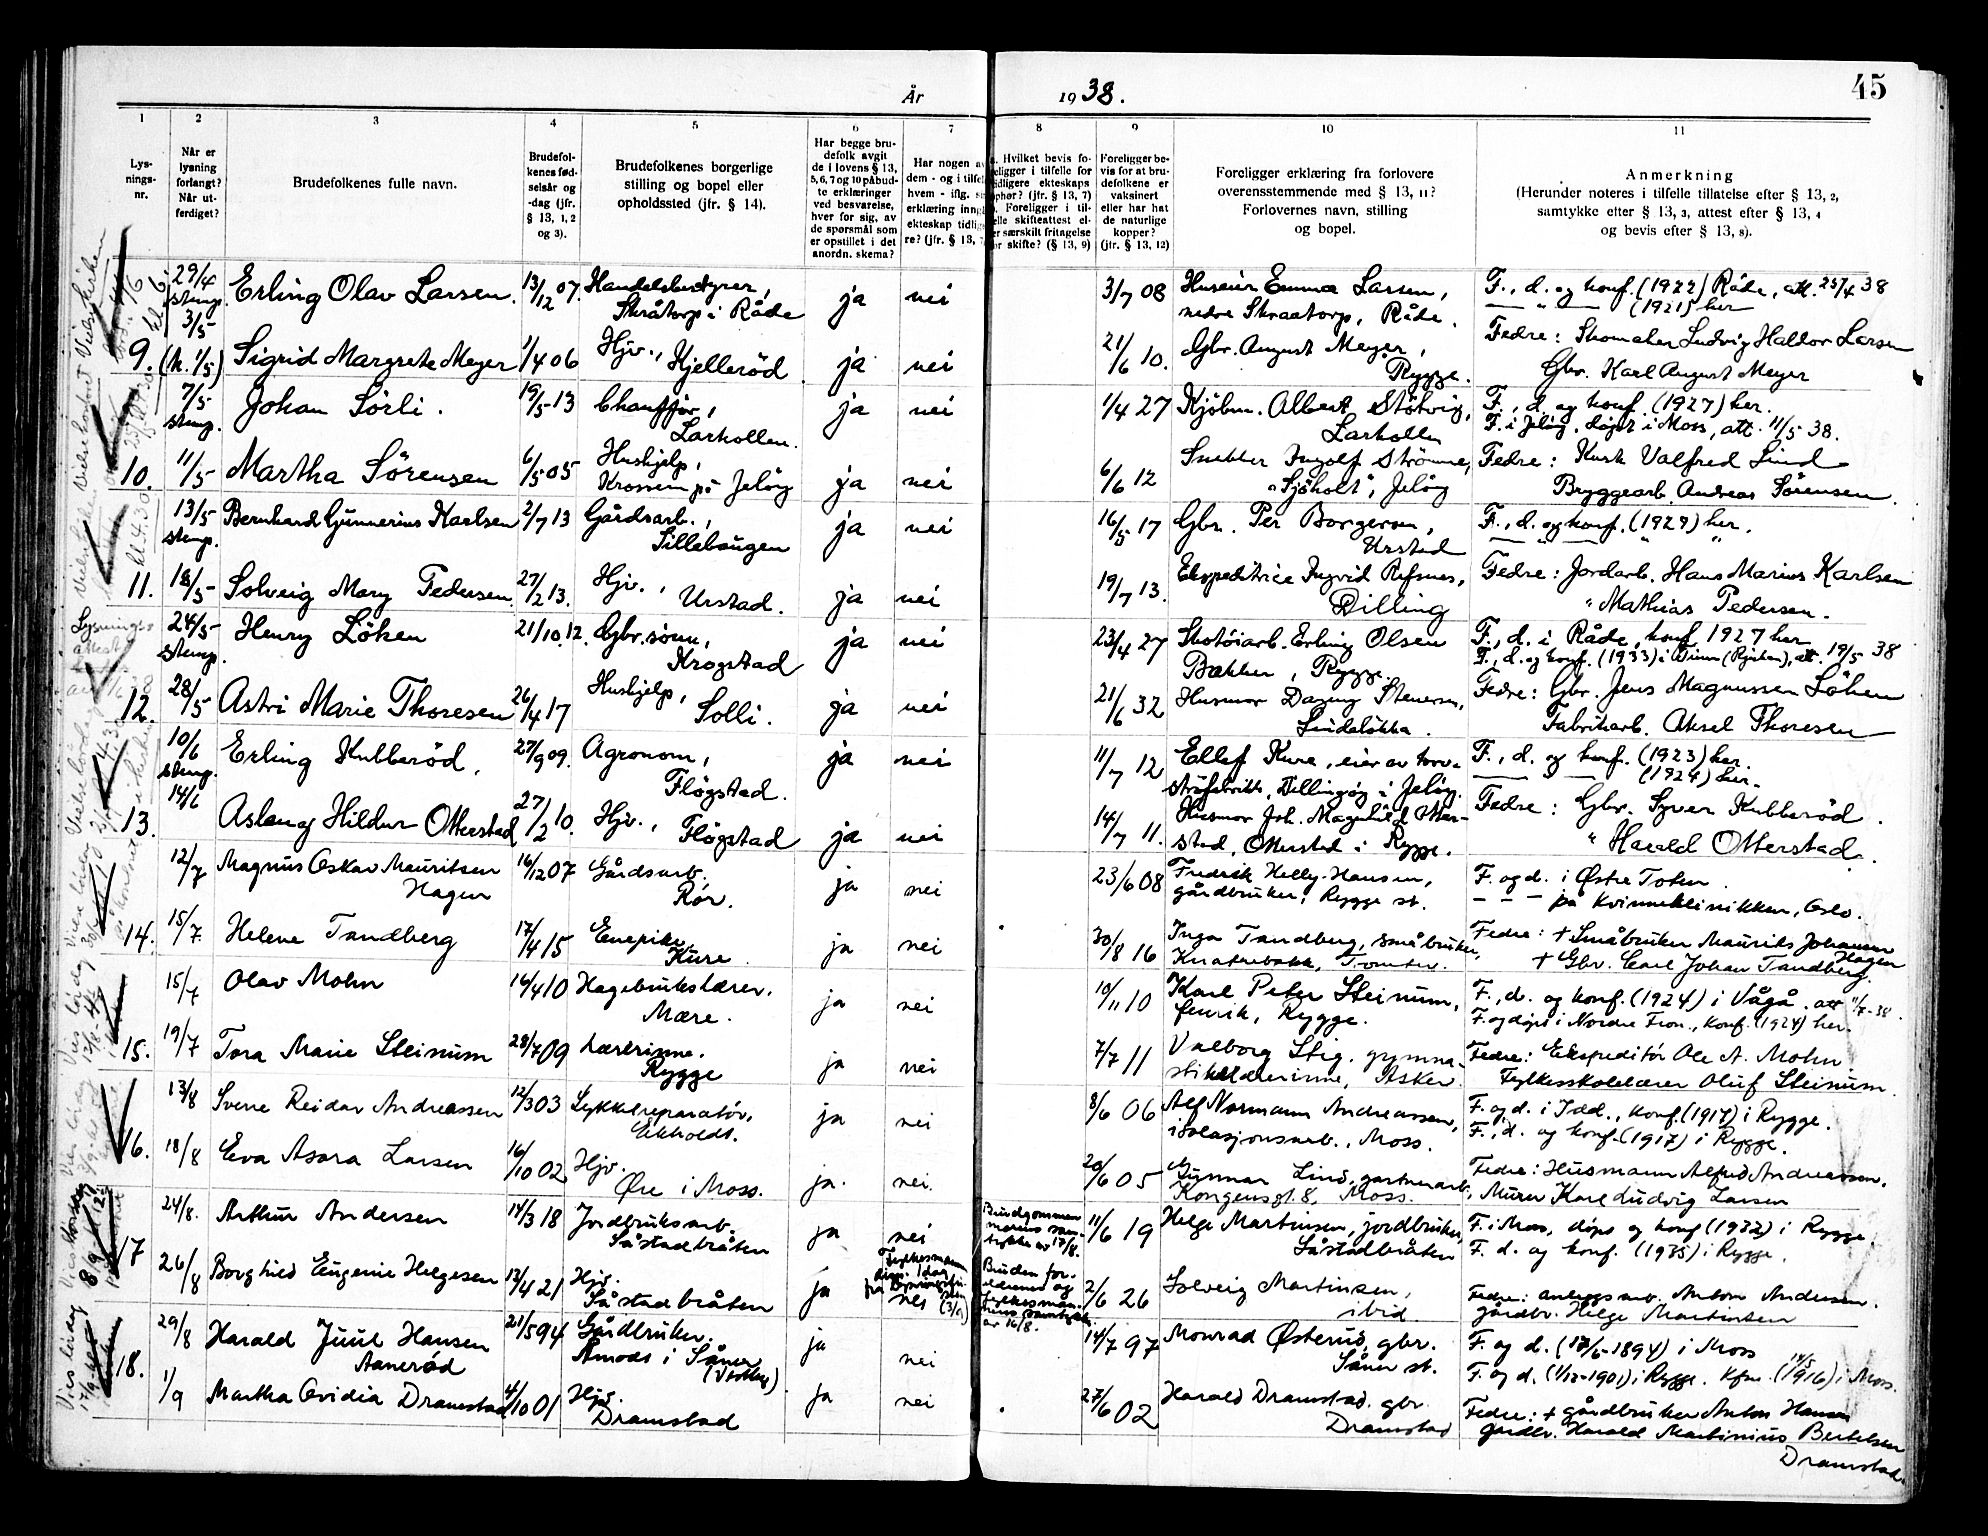 45
År 1938.
1 2 3 4 5 6 7 8 9 10 11
Lys-
nings-
nr.
Når er
lysning
forlangt?
Når ut-
ferdiget?
Brudefolkenes fulle navn.
Brudefol-
kenes fød-
selsår og
-dag (jfr.
§ 13, 1, 2
og 3).
Brudefolkenes borgerlige
stilling og bopel eller
opholdssted (jfr. § 14).
Har begge bru-
defolk avgit
de i lovens § 13,
5, 6, 7 og 10 påbud-
te erklæringer
ved besvarelse,
hver for sig, av
de spørsmål som
er opstillet i det
anordn. skema?
Har nogen av
dem - og i tilfel
hvem - iflg. s
erklæring inng
ekteskap tidlig
re? (jfr. § 13, 7
. Hvilket bevis fo-
religger i tilfelle for
tidligere ekteskaps
ophør? (jfr. § 13, 7)
. Foreligger i til-
elle skifteattest el-
er særskilt fritagelse
or skifte? (§ 13, 9)
Foreligger be-
vis for at bru-
defolkene er
vaksinert
eller har hat
de naturlige
kopper?
(jfr. § 13, 12)
Foreligger erklæring fra forlovere
overensstemmende med § 13, 11?
Forlovernes navn, stilling
og bopel.
Anmerkning
(Herunder noteres i tilfelle tillatelse efter § 13, 2,
samtykke efter § 13, 3, attest efter § 13, 4
og bevis efter § 13, 8).
29/4
stemp.
3/5
Erling Olav Larsen.
13/12 07.
Handelsbestyrer,
Skråtorp i Råde
ja nei
3/7 08
Huseier Emma Larsen,
nedre Skraatorp, Råde.
F., d. og konf. (1922) Råde, att. 25/4 38
— " — (1921) her
9. (k. 1/5) Sigrid Margrete Meyer
1/4 06
Hjv., Kjellerød.
ja nei
21/6 10.
Gbr. August Meyer,
Rygge.
Fedre: Skomaker Ludvig Hallvor Larsen
Gbr. Karl August Meyer
7/5
stemp.
Johan Sörli.
19/5 13
Chauffør,
Larkollen.
ja nei
1/4 27
Kjöbm. Albert Stötvig,
Larkollen
F., d. og konf. (1927) her.
F. i Jelöy, döpt i Moss, att. 11/5 38.
10. 11/5 Martha Sörensen
6/5 05
Hushjelp,
Krossern på Jelöy
ja nei
6/6 12
Snekker Ingolf Strömme,
"Sjöholt", Jelöy
Fedre: Kusk Valfred Lind
Bryggearb. Andreas Sörensen.
13/5
stemp.
Bernhard Gunnerius Karlsen
2/7 13
Gårdsarb.,
Sillebaugen
ja nei
16/5 17
Gbr. Per Borgersen,
Urstad
F., d. og konf. (1929) her.
— " — " "
11. 18/5 Solveig Mary Pedersen
27/2 13.
Hjv., Urstad.
ja nei
19/7 13.
Ekspeditrice Ingrid Refsnes,
Dilling
Fedre: Jordarb. Hans Marius Karlsen
" Mathias Pedersen.
24/5
stemp.
Henry Löken
21/10.12.
Gbr.sönn,
Krogstad
ja nei
23/4 27
Skotöiarb. Erling Olsen
Bakken, Rygge.
F., d. i Råde, konf 1927 her
F., d. og konf. (1933) i Tinn (Rjukan), att. 19/5 38
12. 28/5 Astri Marie Thoresen
26/4 17
Hushjelp,
Solli.
ja nei
21/6 32
Husmor Dagny Stenersen,
Lindelökka.
Fedre: Gbr. Jens Magnussen Löken
Fabrikarb. Aksel Thoresen
10/6
stemp.
Erling Kubberöd.
27/9 09.
Agronom,
Flögstad.
ja nei
11/7 12
Ellef Kure, eier av torv-
ströfabrikk, Dillingöy i Jelöy.
F., d. og konf. (1923) her.
— — (1924) her.
13. 14/6 Aslaug Hildur Otterstad
27/2 10.
Hjv., Flögstad
ja nei
14/7 11.
Husmor Joh. Magnhild Otter-
stad, Otterstad i Rygge.
Fedre: Gbr. Syver Kubberöd.
" Harald Otterstad.
12/7
Magnus Oskar Mauritsen
Hagen
16/12 07
Gårdsarb.
Rör.
ja nei
23/6 08
Fredrik Helly-Hansen,
gårdbruker, Rygge st.
F. og d. i Østre Toten.
— — — på Kvinneklinikken, Oslo.
14. 15/7. Helene Tandberg
17/4 15
Enepike,
Kure.
ja nei
30/8 16
Inga Tandberg, småbruker,
Knatrebakk, Tomter.
Fedre: + Småbruker Maurits Johansen
Hagen
+ Gbr. Carl Johan Tandberg.
15/7
Olav Mohn
14/4 10
Hagebrukslærer.
Mære.
ja nei
10/11 10
Karl Peter Steinum,
fenrik, Rygge.
F., d. og konf. (1924) i Vågå. att 11/7-38.
F. og döpt i Nordre Fron, konf. (1924) her.
15. 19/7 Tora Marie Steinum
28/7 09
Lærerinne.
Rygge
ja nei
7/7 11
Valborg Stig. gymna-
stikklærerinne, Asker.
Fedre: Ekspeditör Ole A. Mohn
Fylkesskolelærer Oluf Steinum.
13/8
Sverre Reidar Andreassen
12/3 03
Sykkelreparatör.
Ekholdt.
ja nei
8/6 06
Alf Normann Andreassen,
isolasjonsarb., Moss.
F. og d. i Idd., konf. (1917) i Rygge.
F., d. og konf. (1917) i Rygge.
16. 18/8 Eva Asora Larsen
16/10 02
Hjv.
Öre i Moss.
ja. nei.
20/6 05
Gunnar Lind, gartnerarb,
Kongensgt. 8, Moss.
Fedre: Husmann Alfred Andreassen,
, Murer Karl Ludvig Larsen
24/8.
Arthur Andersen
14/3 18
Jordbruksarb.
Såstadbråten
ja nei
Brudgommen
samtykke av 17/8.
11/6 19
Helge Martinsen, jordbruker,
Såstadbråten
F. i Moss, döpt og konf (1932) i Rygge
F. d. og konf. (1935) i Rygge.
17 26/8 Borghild Eugenie Helgesen
13/4 21
Hjv.
Såstadbråten
ja nei (3/9)
Fylkesmann
disp.
fra
Bruden for-
eldrenes og
fylkesman-
nens samtykke
av 16/8.
2/6 26
Solveig Martinsen,
ibid.
Fedre: anleggsarb. Anton Andersen.
gårdbr. Helge Martinsen
29/8
Harald Juul Hansen
Aanerød
21/5 94
Gårdbruker.
Åmodt i Såner
(Vestby)
ja nei
14/7 97
Monrad Østerud, gbr.
Såner st.
F. og d. (17/6-1894) i Moss
F. og d. (1/12-1901) i Rygge. Kfm. (14/5 1916) i Moss.
18. 1/9 Martha Ovidia Dramstad
4/10 01
Hjv.
Dramstad
ja nei
27/6 02
Harald Dramstad. gbr.
Dramstad
Fedre: + gårdbruker Anton Hansen
gårdbr. Harald Martinius Bertelsen
Dramstad.